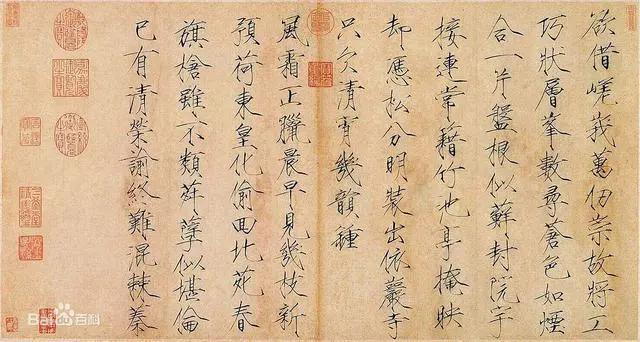 欲借嵯峨萬仞崇故將工
巧狀層峯數尋蒼色如煙
合一片盤根似蘚封院宇
接連常藉竹池亭掩映
却憑松分明裝出依巖寺
只欠清宵幾韻鍾
風霜正臘晨早見幾枝新
預荷東皇化偷回北苑春
旗槍雖不類荈孽似堪倫
已有清榮諭終難混棘蓁
Bai百科